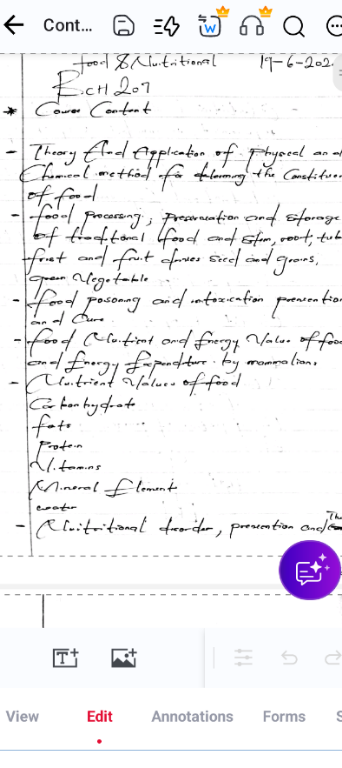 Cont...
W
food & Nutritional 19-6-202
BCH 207
* Course Content
- Theory And Application of Physical and
Chemical method for determing the Constitue
of food
- food processing, preservation and storage
of traditional food and stem, root, tub
fruit and fruit juices seed and grains,
green Vegetable
- food poisoning and intoxication prevention
and Cure
- food Nutrient and Energy Value of foo
and Energy Expenditure by mammalian
- Nutrient Values of food
Carbohydrate
fats
Protein
Vitamins
Mineral Element
water
- Nutritional disorder, prevention and
T+
View Edit Annotations Forms S